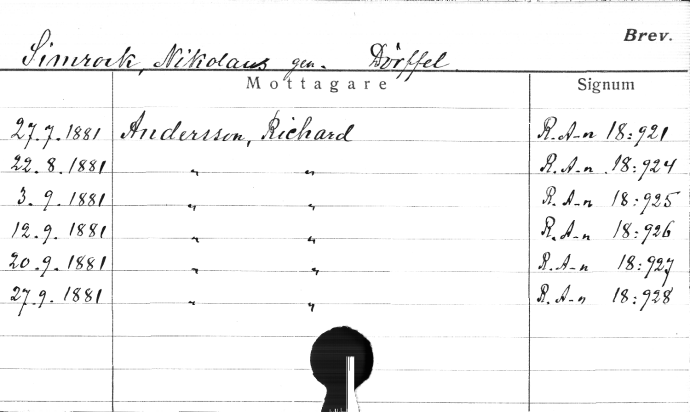 Brev.
Simrock, Nikolaus gen. Dörffel.
Mottagare Signum
27.7.1881 Andersson, Richard R.A-n 18:921
22.8.1881 " " R.A-n 18:924
3.9.1881 " " R.A-n 18:925
12.9.1881 " " R.A-n 18:926
20.9.1881 " " R.A-n 18:927
27.9.1881 " " R.A-n 18:928